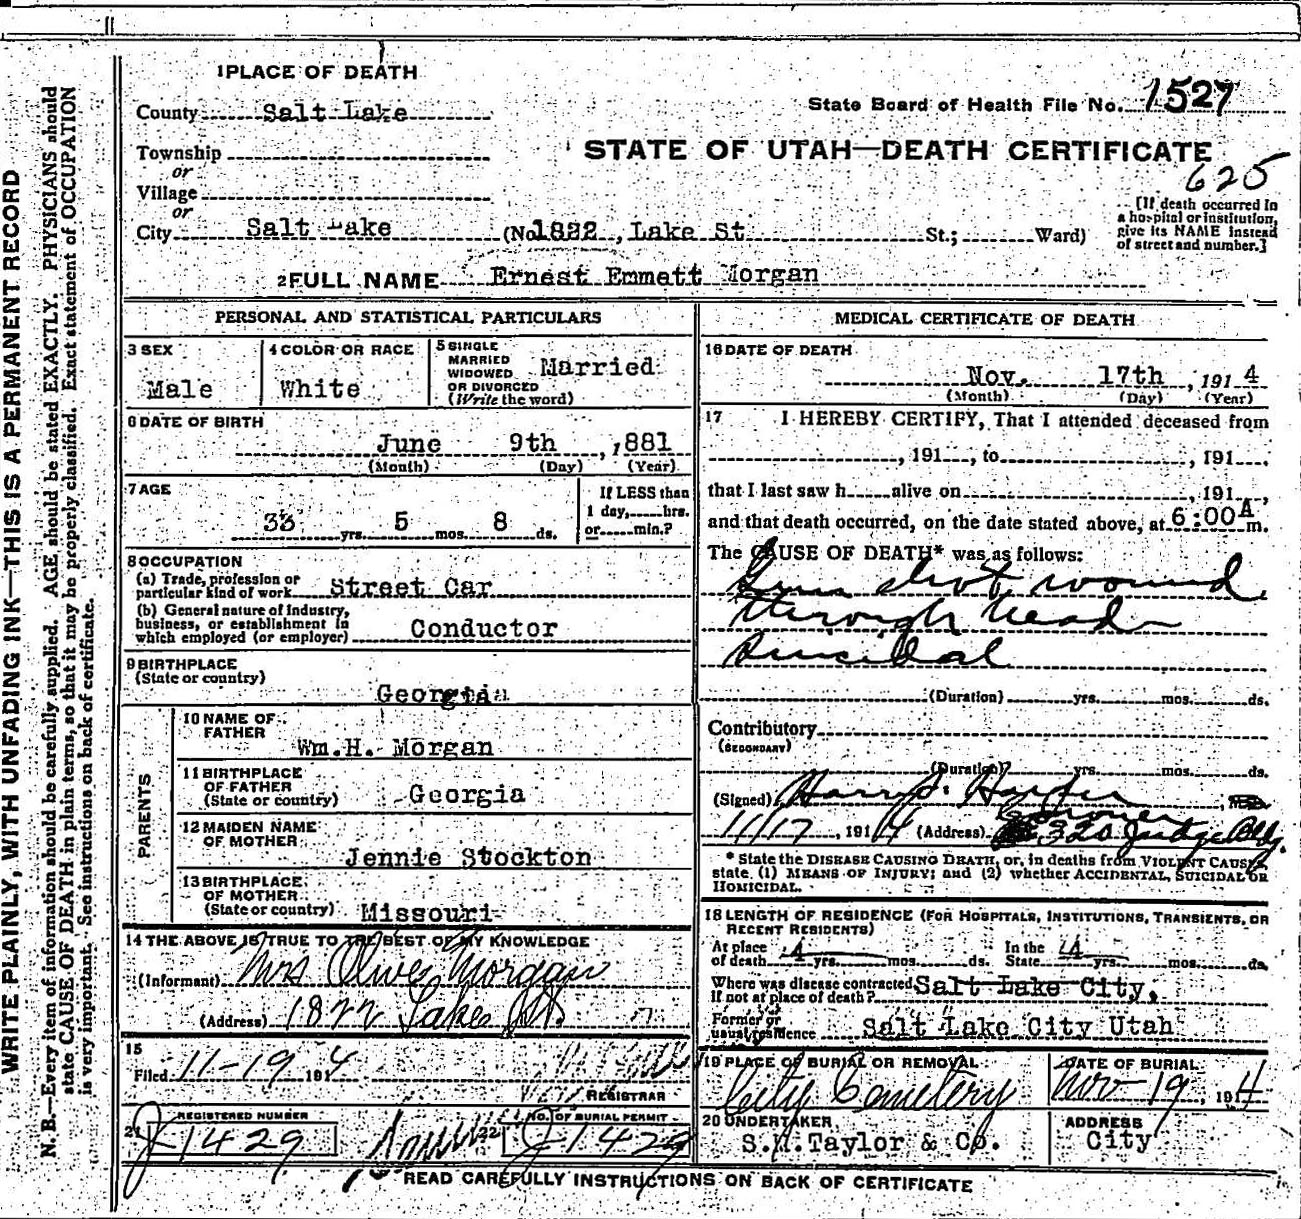 1 PLACE OF DEATH
County Salt Lake
State Board of Health File No. 1527
Township
or
Village
or
City Salt Lake (No 1822, Lake St St.; Ward)
STATE OF UTAH—DEATH CERTIFICATE
625
[If death occurred in
a hospital or institution,
give its NAME instead
of street and number.]
2 FULL NAME Ernest Emmett Morgan
PERSONAL AND STATISTICAL PARTICULARS
3 SEX
Male
4 COLOR OR RACE
White
5 SINGLE
MARRIED
WIDOWED
OR DIVORCED
(Write the word)
Married
6 DATE OF BIRTH
June 9th, 1881
(Month) (Day) (Year)
7 AGE
33 yrs. 5 mos. 8 ds.
If LESS than
1 day, hrs.
or min.?
8 OCCUPATION
(a) Trade, profession or
particular kind of work Street Car
(b) General nature of industry,
business, or establishment in
which employed (or employer) Conductor
9 BIRTHPLACE
(State or country)
Georgia
PARENTS
10 NAME OF
FATHER
Wm.H. Morgan
11 BIRTHPLACE
OF FATHER
(State or country) Georgia
12 MAIDEN NAME
OF MOTHER
Jennie Stockton
13 BIRTHPLACE
OF MOTHER
(State or country) Missouri
14 THE ABOVE IS TRUE TO THE BEST OF MY KNOWLEDGE
(Informant) Mrs Olive Morgan
(Address) 1822 Lake St.
15
Filed 11-19 1914
REGISTRAR
REGISTERED NUMBER
21 J 1429
NO. OF BURIAL PERMIT
22 J 1429
MEDICAL CERTIFICATE OF DEATH
16 DATE OF DEATH
Nov. 17th, 1914
(Month) (Day) (Year)
17 I HEREBY CERTIFY, That I attended deceased from
, 191 , to , 191
that I last saw h alive on , 191 ,
and that death occurred, on the date stated above, at 6:00 A m.
The CAUSE OF DEATH* was as follows:
Gun shot wound
through head
Suicidal
(Duration) yrs. mos. ds.
Contributory
(SECONDARY)
(Duration) yrs. mos. ds.
(Signed) Harry S. Harper
Coroner
11/17, 1914 (Address) 320 Judge Bldg.
* State the DISEASE CAUSING DEATH, or, in deaths from VIOLENT CAUSES
state (1) MEANS OF INJURY; and (2) whether ACCIDENTAL, SUICIDAL OR
HOMICIDAL.
18 LENGTH OF RESIDENCE (FOR HOSPITALS, INSTITUTIONS, TRANSIENTS, OR
RECENT RESIDENTS)
At place In the
of death 4 yrs. mos. ds. State 4 yrs. mos. ds.
Where was disease contracted Salt Lake City,
if not at place of death?
Former or
usual residence Salt Lake City Utah
19 PLACE OF BURIAL OR REMOVAL
City Cemetery
DATE OF BURIAL
Nov 19, 1914
20 UNDERTAKER
S.M. Taylor & Co.
ADDRESS
City
READ CAREFULLY INSTRUCTIONS ON BACK OF CERTIFICATE
WRITE PLAINLY, WITH UNFADING INK—THIS IS A PERMANENT RECORD
N. B.—Every item of information should be carefully supplied. AGE should be stated EXACTLY. PHYSICIANS should
state CAUSE OF DEATH in plain terms, so that it may be properly classified. Exact statement of OCCUPATION
is very important. See instructions on back of certificate.